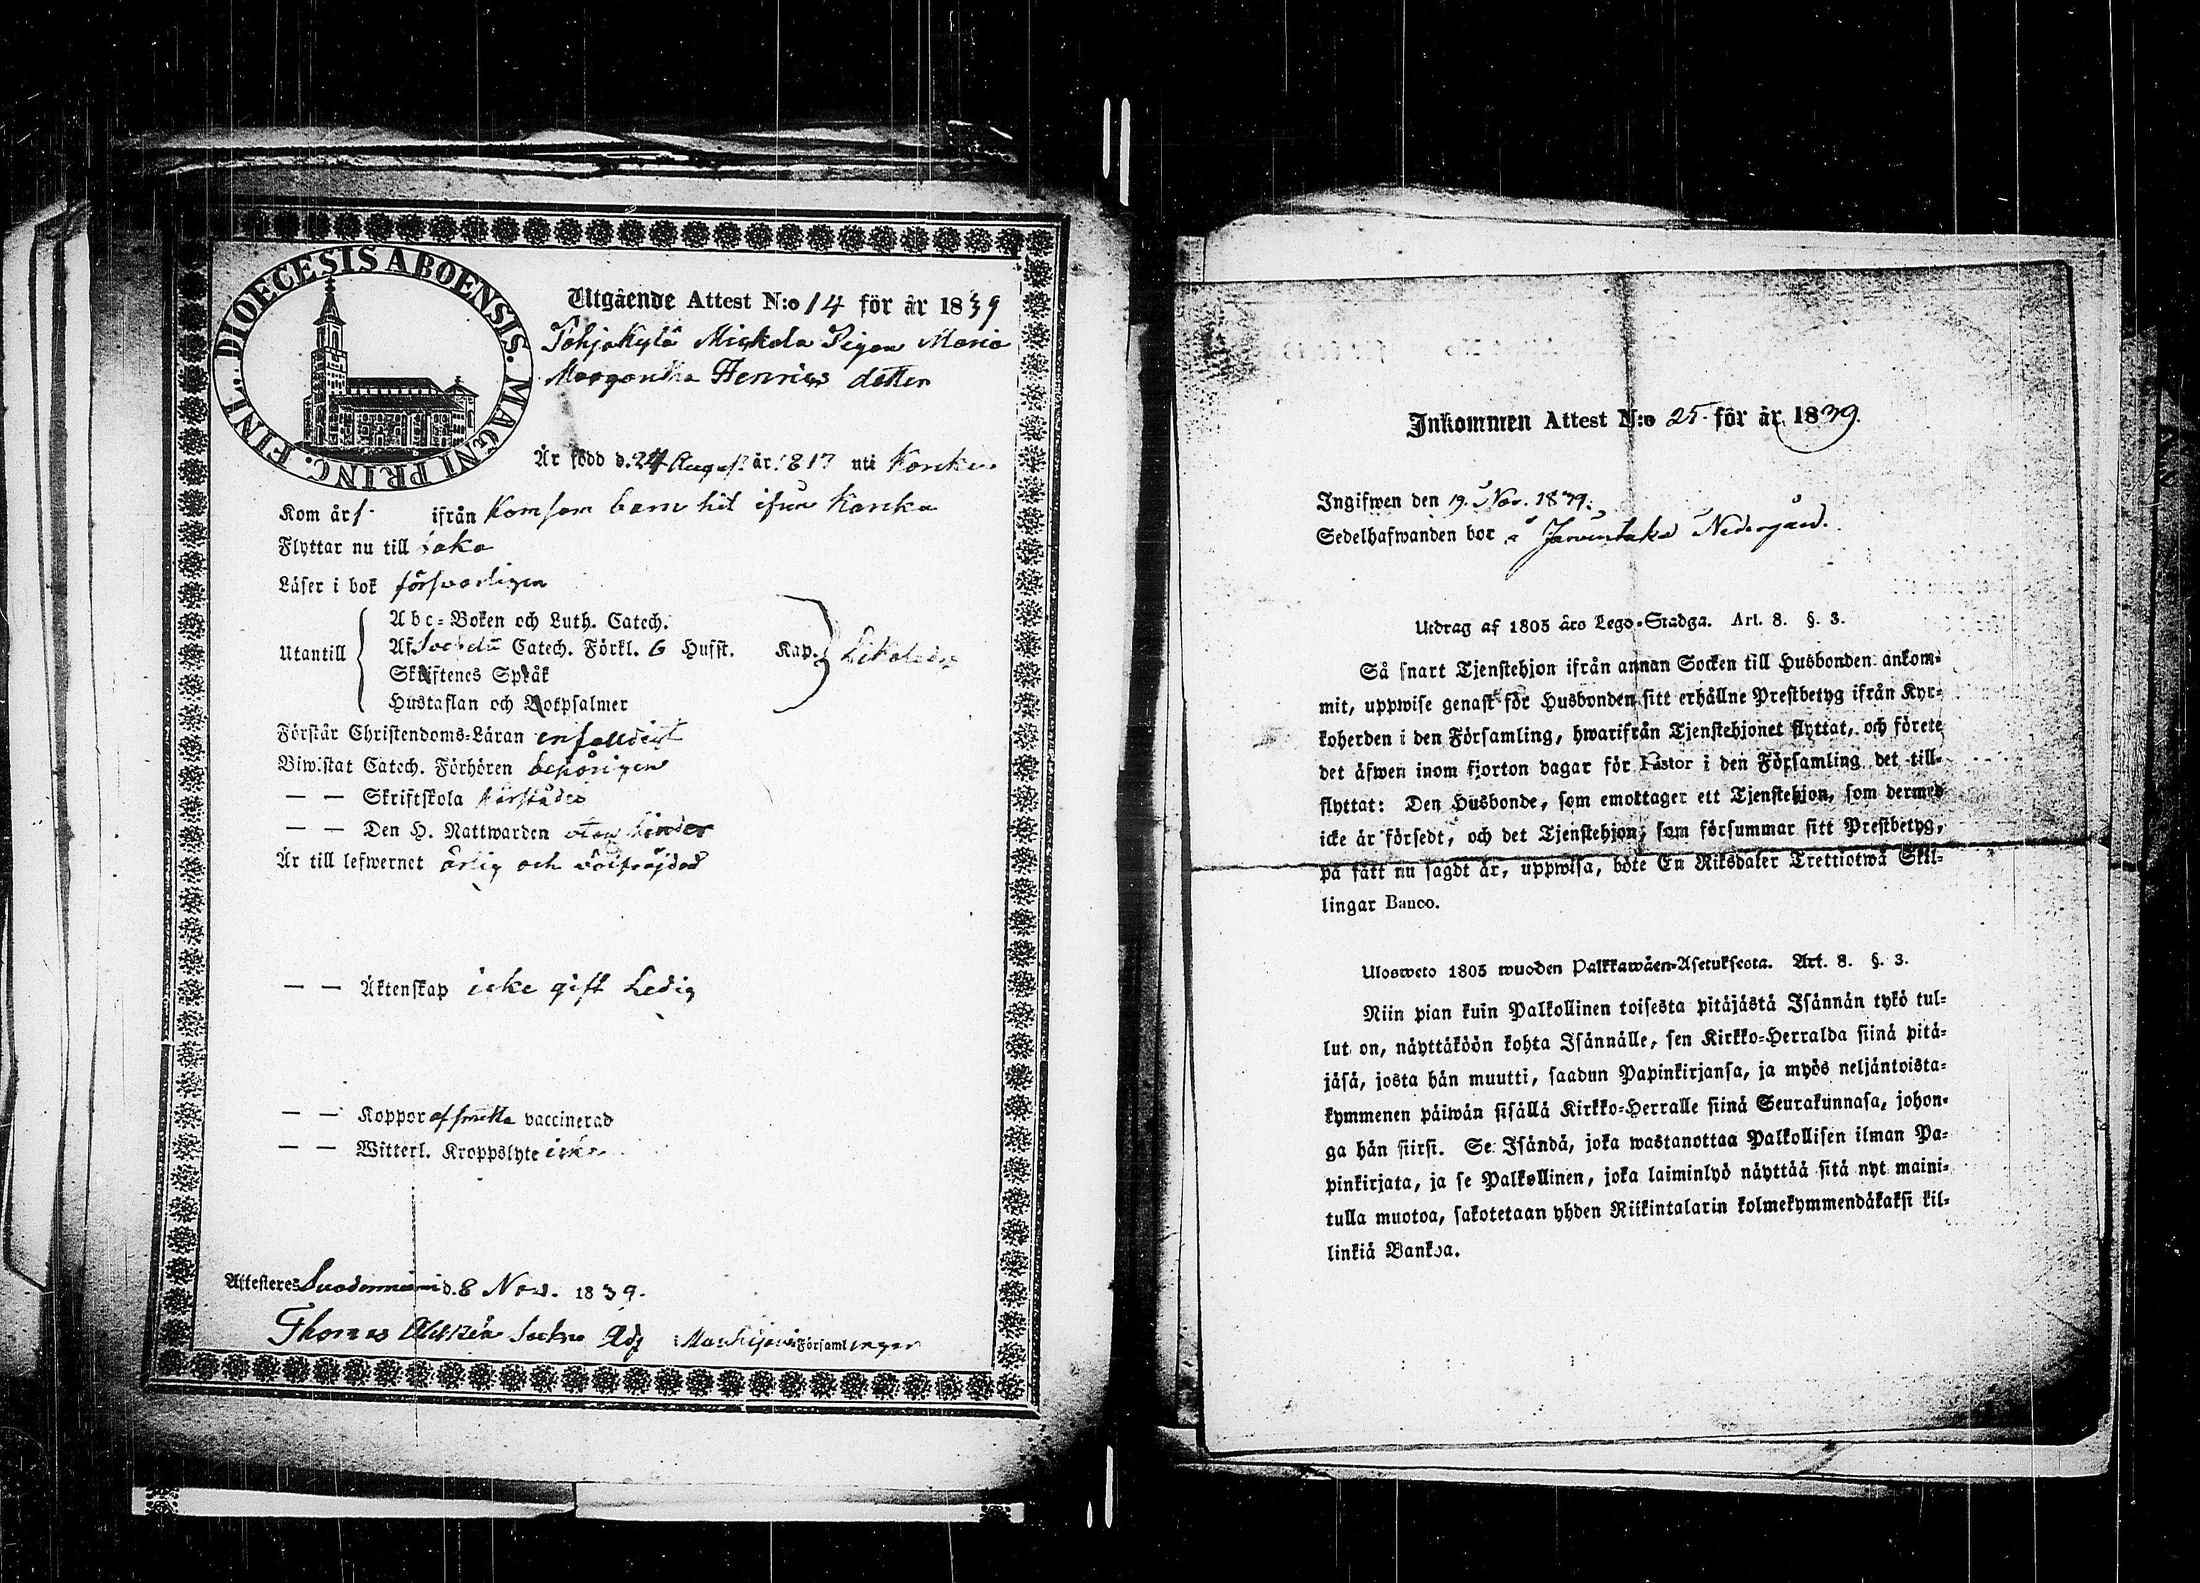 FINL. DIOECESIS ABOENSIS. MAGNI PRINC.
Utgående Attest N:o 14 för år 1839
Pohjakylä Mickola Pigan Maria
Margaretha Henrics dotter
Är född d. 24 August. år 1817 uti Kanka
Kom år ifrån Kom som barn hit ifrån Kanka
Flyttar nu till
Läser i bok försvarligen
Utantill
Abc-Boken och Luth. Catech.
Af Svebelii Catech. Förkl. 6 Hufst. Kap.
Skriftenes Språk
Hustaflan och Botpsalmer
Förstår Christendoms-Läran enfaldigt
Biwistat Catech. Förhören behörigen
— — Skriftskola härstädes
— — Den H. Nattwarden utan hinder
Är till lefwernet ärlig och välfräjdad
— — Äktenskap icke gift Ledig
— — Koppor af smitta vaccinerad
— — Witterl. Kroppslyte icke
Attesteras Suodenniemi d. 8 Nov. 1839.
Thomas Adj Mouhijärvi Församlingar
Inkommen Attest N:o 25 för år 1839.
Ingifwen den 19. Nov. 1839.
Sedelhafwanden bor å Jarventaka Nedergård.
Utdrag af 1805 års Lego-Stadga. Art. 8. §. 3.
Så snart Tjenstehjon ifrån annan Socken till Husbonden ankom-
mit, uppwise genast för Husbonden sitt erhållne Prestbetyg ifrån Kyr-
koherden i den Församling, hwarifrån Tjenstehjonet flyttat, och förete
det äfwen inom fjorton dagar för Pastor i den Församling det till-
flyttat: Den Husbonde, som emottager ett Tjenstehjon, som dermed
icke är försedt, och det Tjenstehjon, som försummar sitt Prestbetyg,
på sätt nu sagdt är, uppwisa, böte En Riksdaler Trettiotwå Skil-
lingar Banco.
Ulosweto 1805 wuoden Palkkawäen-Asetuksesta. Art. 8. §. 3.
Niin pian kuin Palkollinen toisesta pitäjästä Isännän tykö tul-
lut on, näyttäköön kohta Isännälle, sen Kirkko-Herralda siinä pitä-
jäsä, josta hän muutti, saadun Papinkirjansa, ja myös neljäntoista-
kymmenen päiwän sisällä Kirkko-Herralle siinä Seurakunnasa, johon-
ga hän siirsi. Se Isändä, joka wastanottaa Palkollisen ilman Pa-
pinkirjata, ja se Palkollinen, joka laiminlyö näyttää sitä nyt maini-
tulla muotoa, sakotetaan yhden Riikintalarin kolmekymmendäkaksi kil-
linkiä Bankoa.